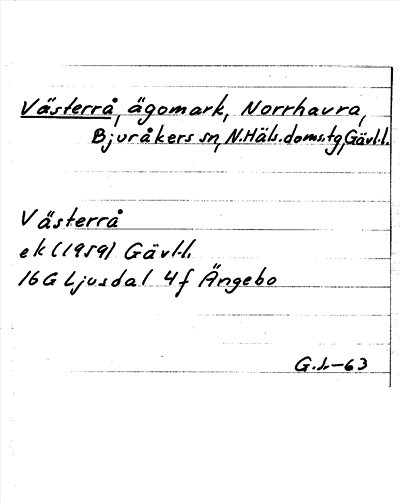 Västerrå, ägomark, Norrhavra,
Bjuråkers sn, N.Häls.doms.tg, Gävl.l.
Västerrå
ek (1959) Gävl.l.
16G Ljusdal 4f Ängebo
G.L.-63